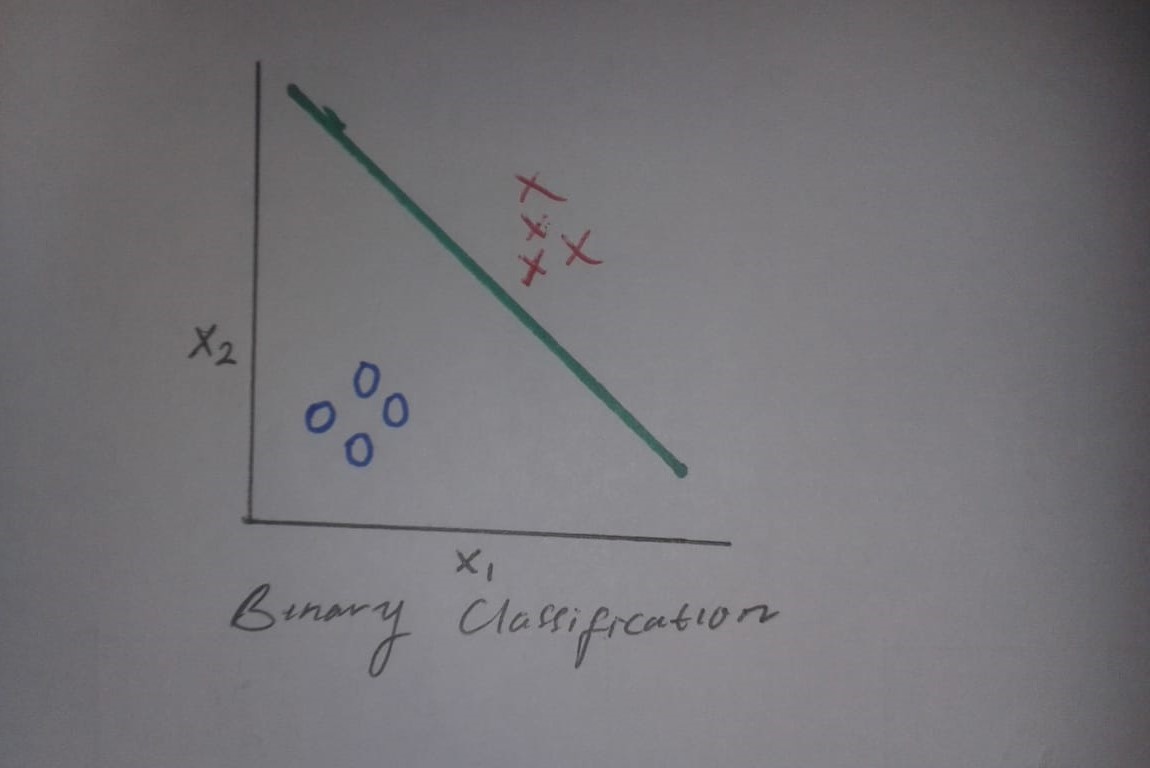 X2
X1
Binary Classification